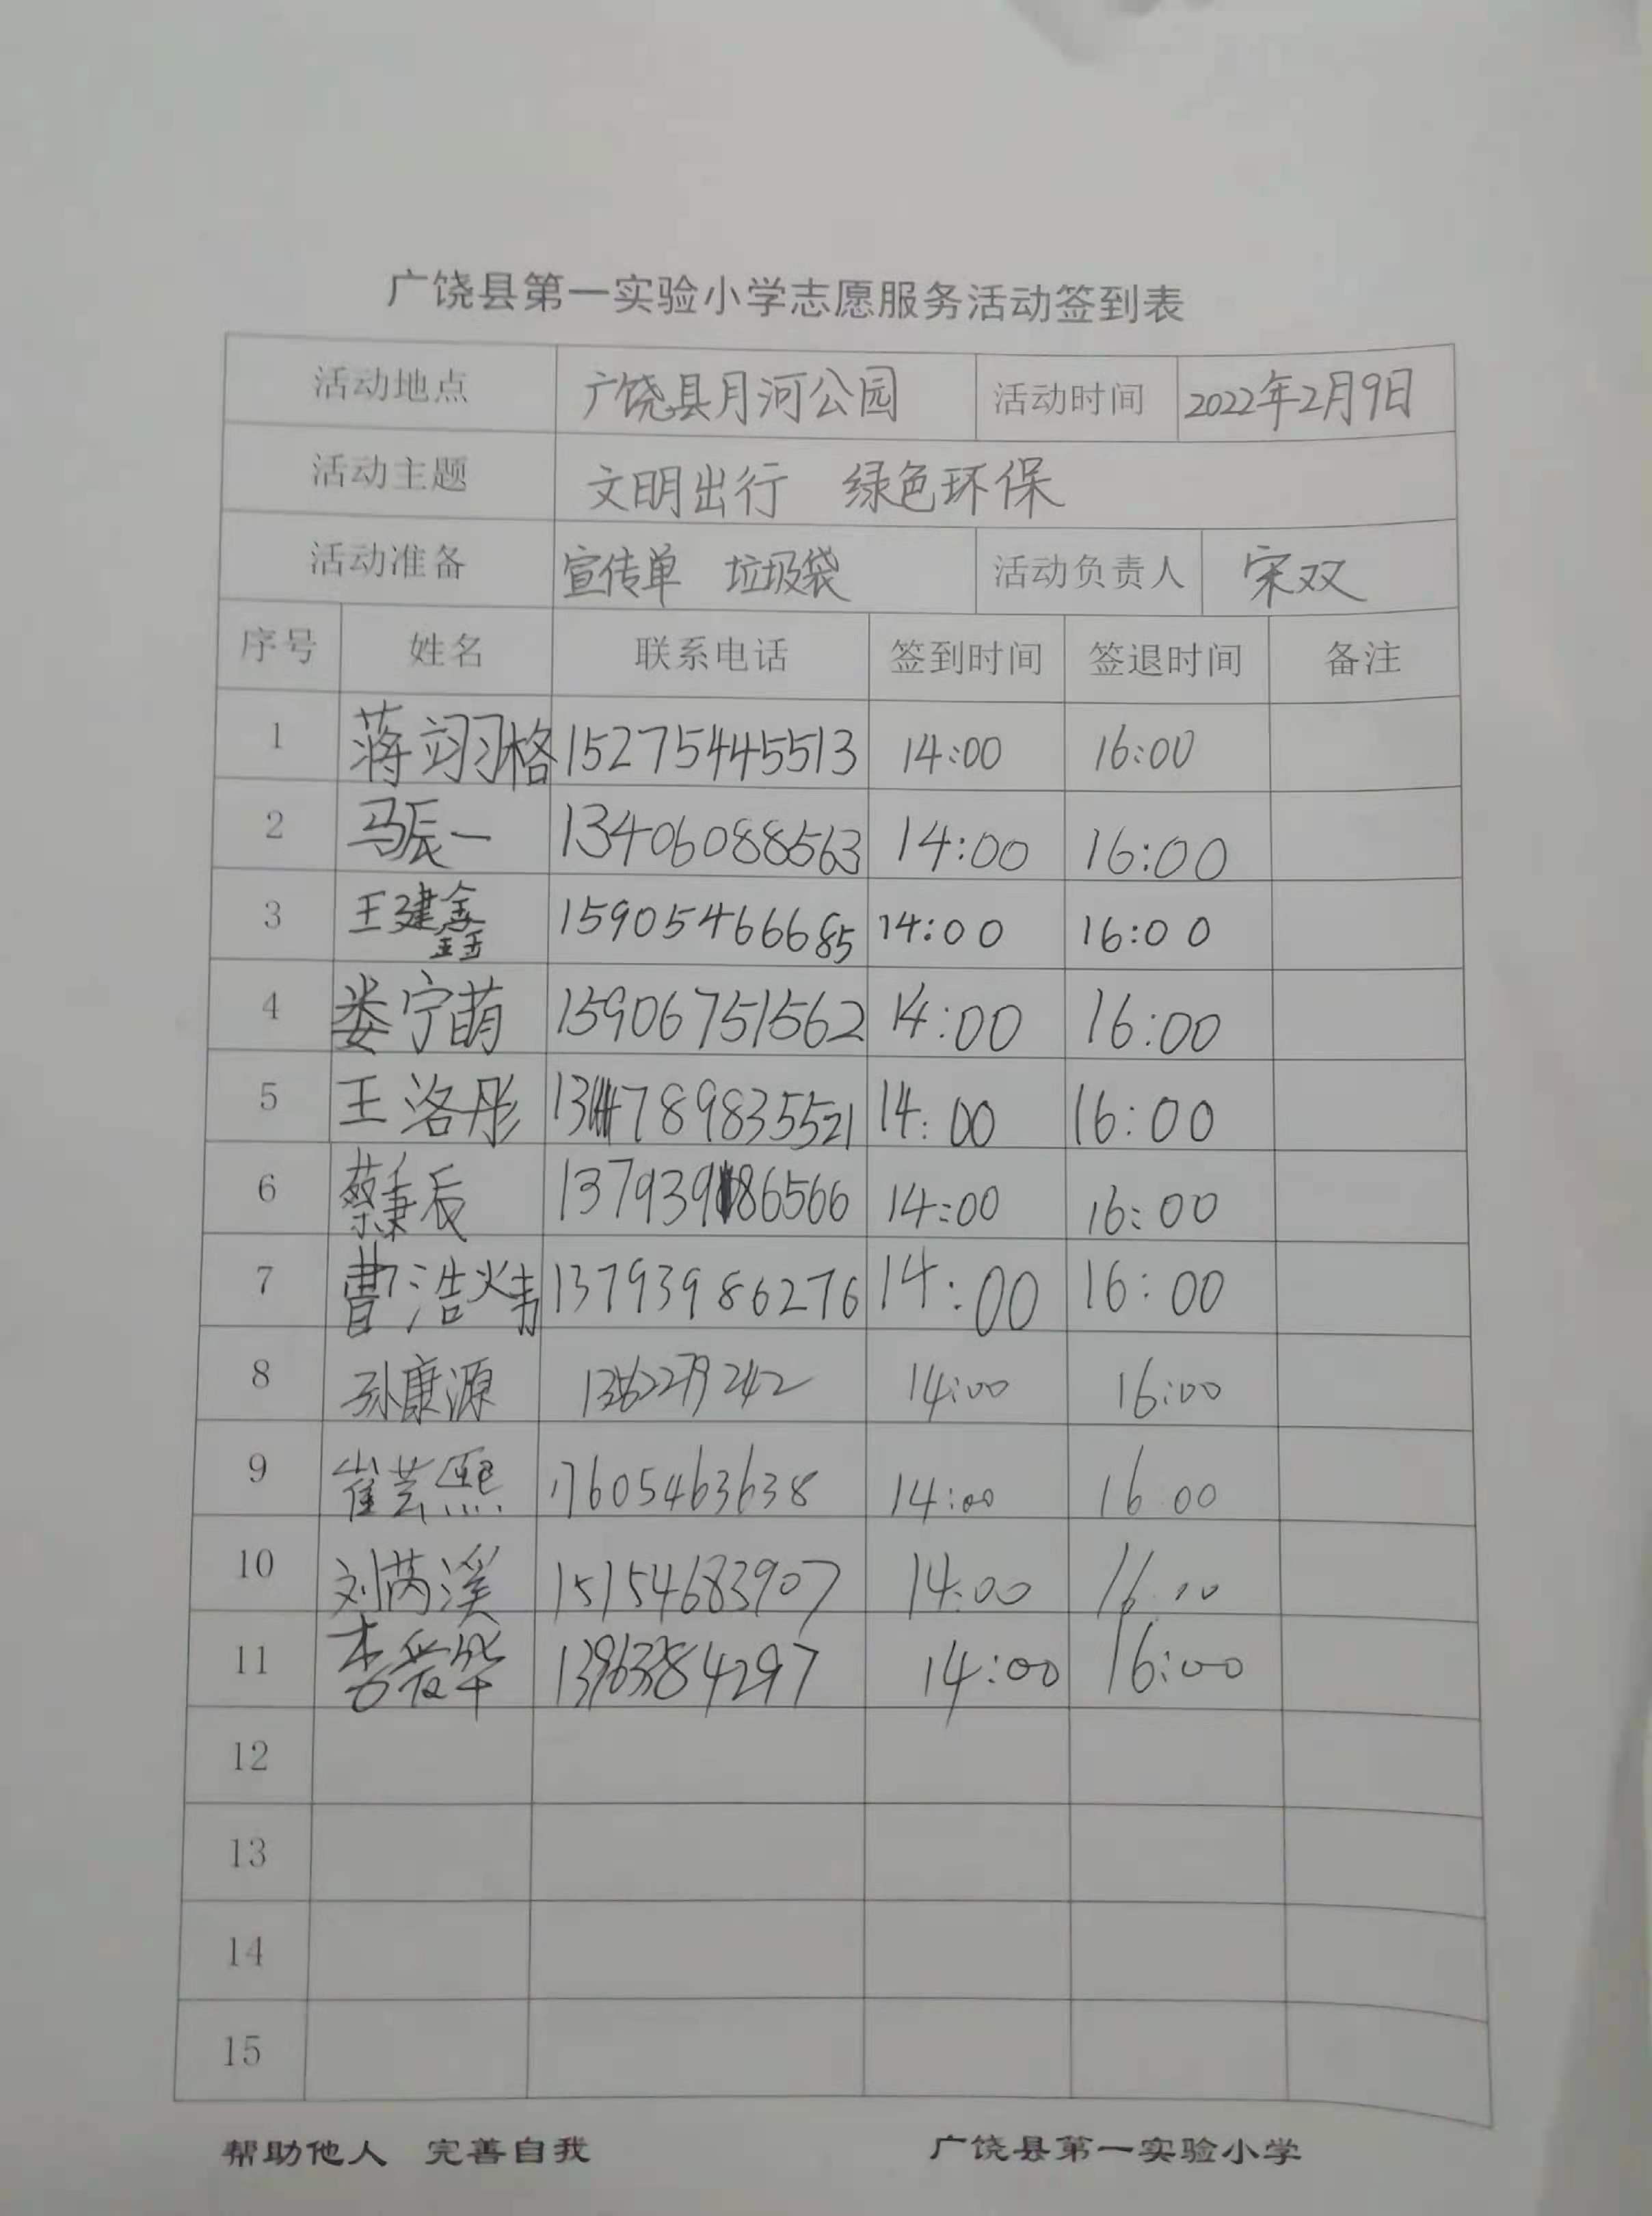 广饶县第一实验小学志愿服务活动签到表
活动地点 广饶县月河公园 活动时间 2022年2月9日
活动主题 文明出行 绿色环保
活动准备 宣传单 垃圾袋 活动负责人 宋双
序号 姓名 联系电话 签到时间 签退时间 备注
1 蒋翊格 15275445513 14:00 16:00
2 马辰一 13406088563 14:00 16:00
3 王建鑫 15905466685 14:00 16:00
4 娄宁萌 15906751562 14:00 16:00
5 王洛彤 14:00 16:00
6 蔡秉辰 13793986566 14:00 16:00
7 曹浩炜 13793986276 14:00 16:00
8 孙康源 14:00 16:00
9 崔芸熙 17605463638 14:00 16 00
10 刘芮溪 15154683907 14:00
11 14:00 16:00
12
13
14
15
帮助他人 完善自我 广饶县第一实验小学